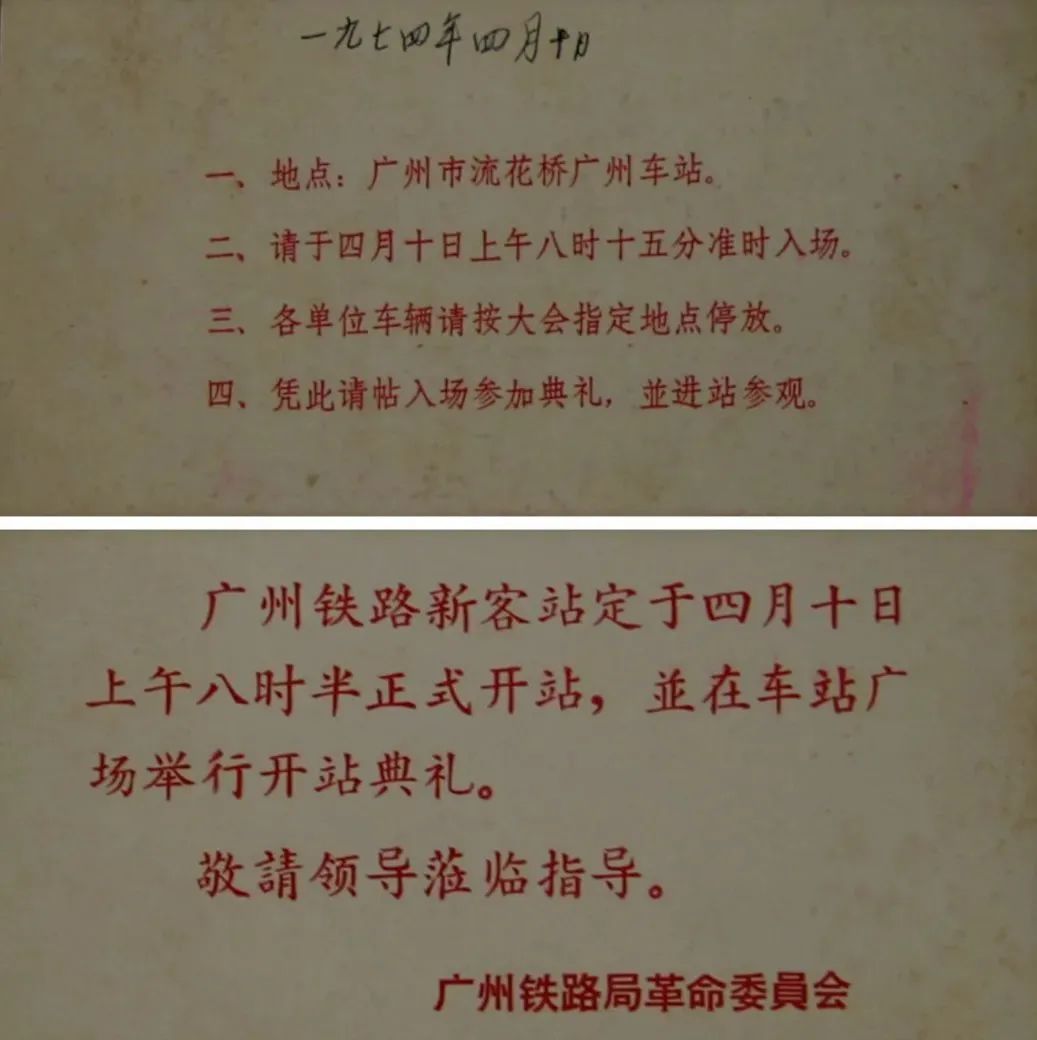 一九七四年四月十日
一、地点：广州市流花桥广州车站。
二、请于四月十日上午八时十五分准时入场。
三、各单位车辆请按大会指定地点停放。
四、凭此请帖入场参加典礼，並进站参观。
广州铁路新客站定于四月十日
上午八时半正式开站，並在车站广
场举行开站典礼。
敬請领导蒞临指导。
广州铁路局革命委員会